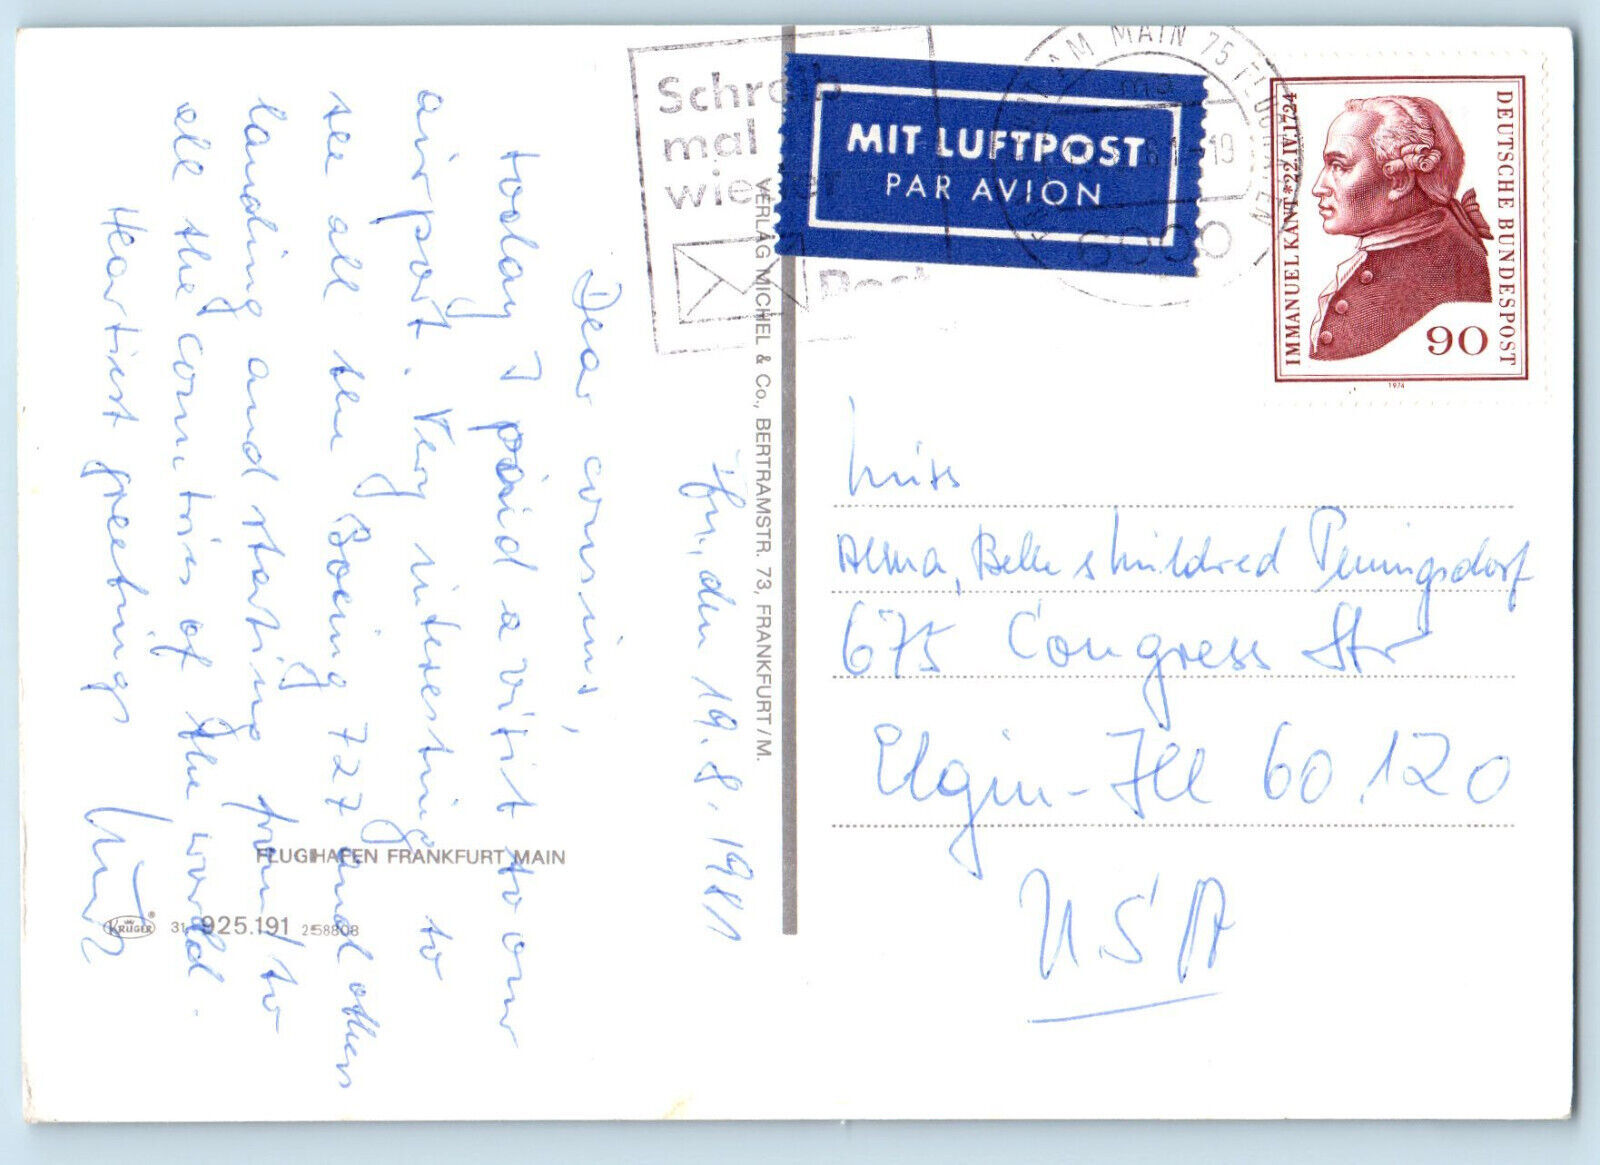 Schreib
mal
wieder
Post
MIT LUFTPOST
PAR AVION
MAIN 75
6000
IMMANUEL KANT * 22.IV.1724
DEUTSCHE BUNDESPOST
90
1974
VERLAG MICHEL & Co., BERTRAMSTR. 73, FRANKFURT/M.
Ffm., den 19.8.1981
Dear cousins,
today I paid a visit to our
airport. Very interesting to
see all the Boeing 727 and others
landing and starting from/to
all the countries of the world.
Heartiest greetings
FLUGHAFEN FRANKFURT MAIN
KRÜGER
® 31 925.191 258808
Miss
Alma, Belle & Mildred Penningsdorf
675 Congress Str
Elgin-Ill 60.120
USA